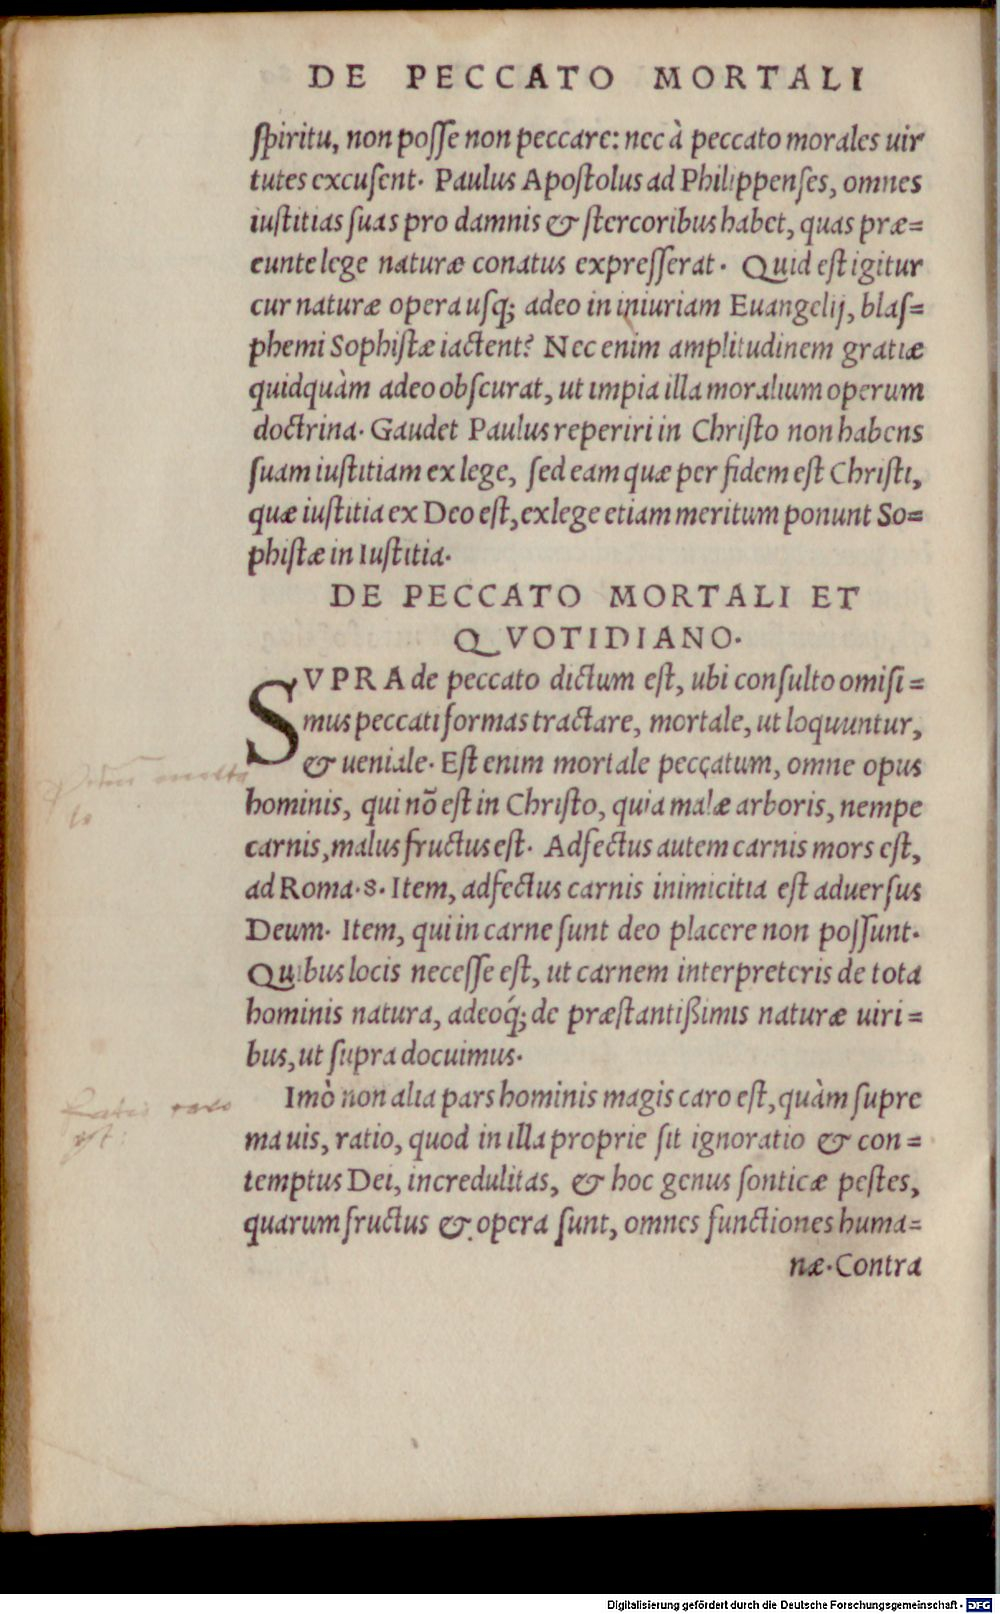 DE PECCATO MORTALI
ſpiritu, non poſſe non peccare: nec à peccato morales uir
tutes excuſent. Paulus Apoſtolus ad Philippenſes, omnes
iuſtitias ſuas pro damnis & ſtercoribus habet, quas præ=
eunte lege naturæ conatus expreſſerat. Quid eſt igitur
cur naturæ opera uſq; adeo in iniuriam Euangelij, blaſ=
phemi Sophiſtæ iactent? Nec enim amplitudinem gratiæ
quidquàm adeo obſcurat, ut impia illa moralium operum
doctrina. Gaudet Paulus reperiri in Chriſto non habens
ſuam iuſtitiam ex lege, ſed eam quæ per fidem eſt Chriſti,
quæ iuſtitia ex Deo eſt, ex lege etiam meritum ponunt So=
phiſtæ in Iuſtitia.
DE PECCATO MORTALI ET
QVOTIDIANO.
SVPRA de peccato dictum eſt, ubi conſulto omiſi=
mus peccati formas tractare, mortale, ut loquuntur,
& ueniale. Eſt enim mortale peccatum, omne opus
hominis, qui nō eſt in Chriſto, quia malæ arboris, nempe
carnis, malus fructus eſt. Adfectus autem carnis mors eſt,
ad Roma.8. Item, adfectus carnis inimicitia eſt aduerſus
Deum. Item, qui in carne ſunt deo placere non poſſunt.
Quibus locis neceſſe eſt, ut carnem interpreteris de tota
hominis natura, adeoq́; de præſtantißimis naturæ uiri=
bus, ut ſupra docuimus.
Imò non alia pars hominis magis caro eſt, quàm ſupre
ma uis, ratio, quod in illa proprie ſit ignoratio & con=
temptus Dei, incredulitas, & hoc genus ſonticæ peſtes,
quarum fructus & opera ſunt, omnes functiones huma=
næ. Contra
Ratio caro
est:
Digitalisierung gefördert durch die Deutsche Forschungsgemeinschaft - DFG